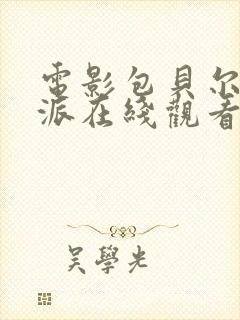 電影包貝尔
派在綫觀看
吴學光